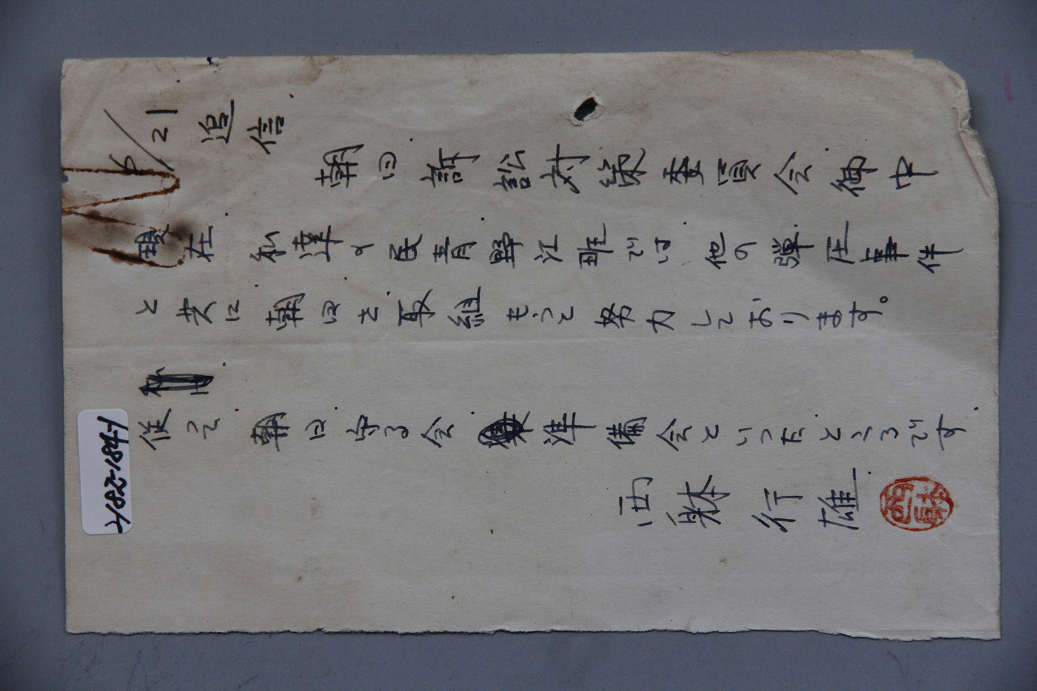 6/21 追信
朝日訴訟対策委員会御中
現在 私達の民青野江班では 他の弾圧事件
と共に 朝日を取組もうと努力しております。
従って 朝日守る会 準備会といったところです
西躰行雄